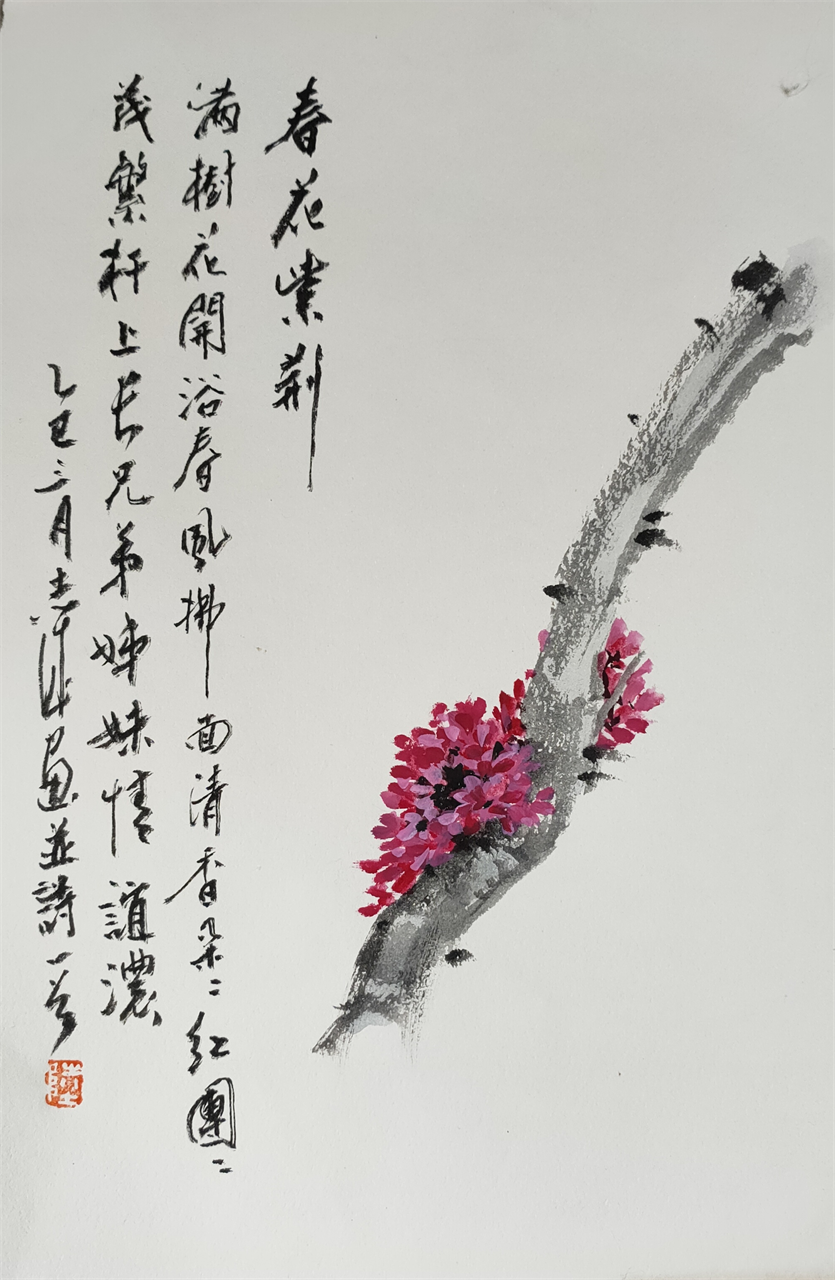 春花紫荆
滿樹花開浴春風拂面清香朵〻紅團〻
茂繁杆上長兄弟姊妹情誼濃
乙巳三月志畫並詩一首
陸